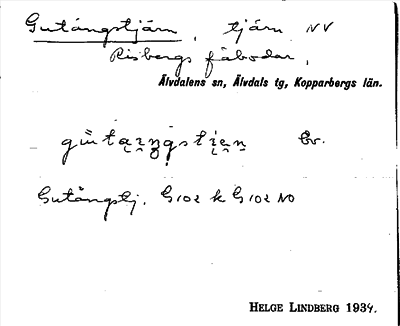 Gutångstjärn, tjärn NV
Risbergs fäbodar,
Älvdalens sn, Älvdals tg, Kopparbergs län.
Gutångstj. G102 k G102 NO
HELGE LINDBERG 1934.